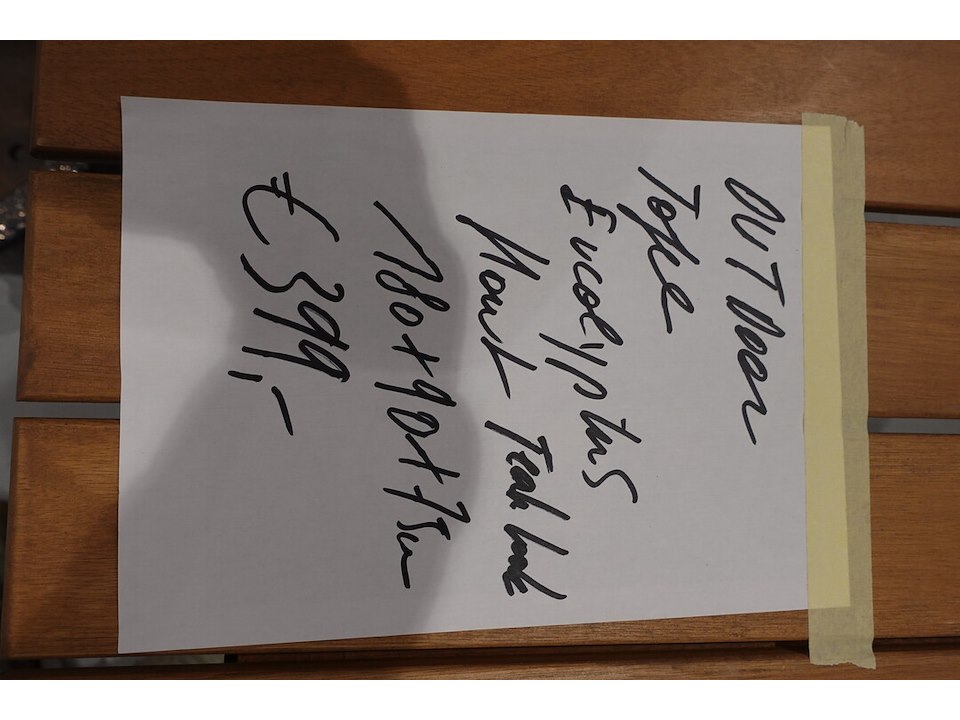 OUTDoor
Tafel
Eucalyptus
Hout Teak look
180+90+75cm
€ 399,-